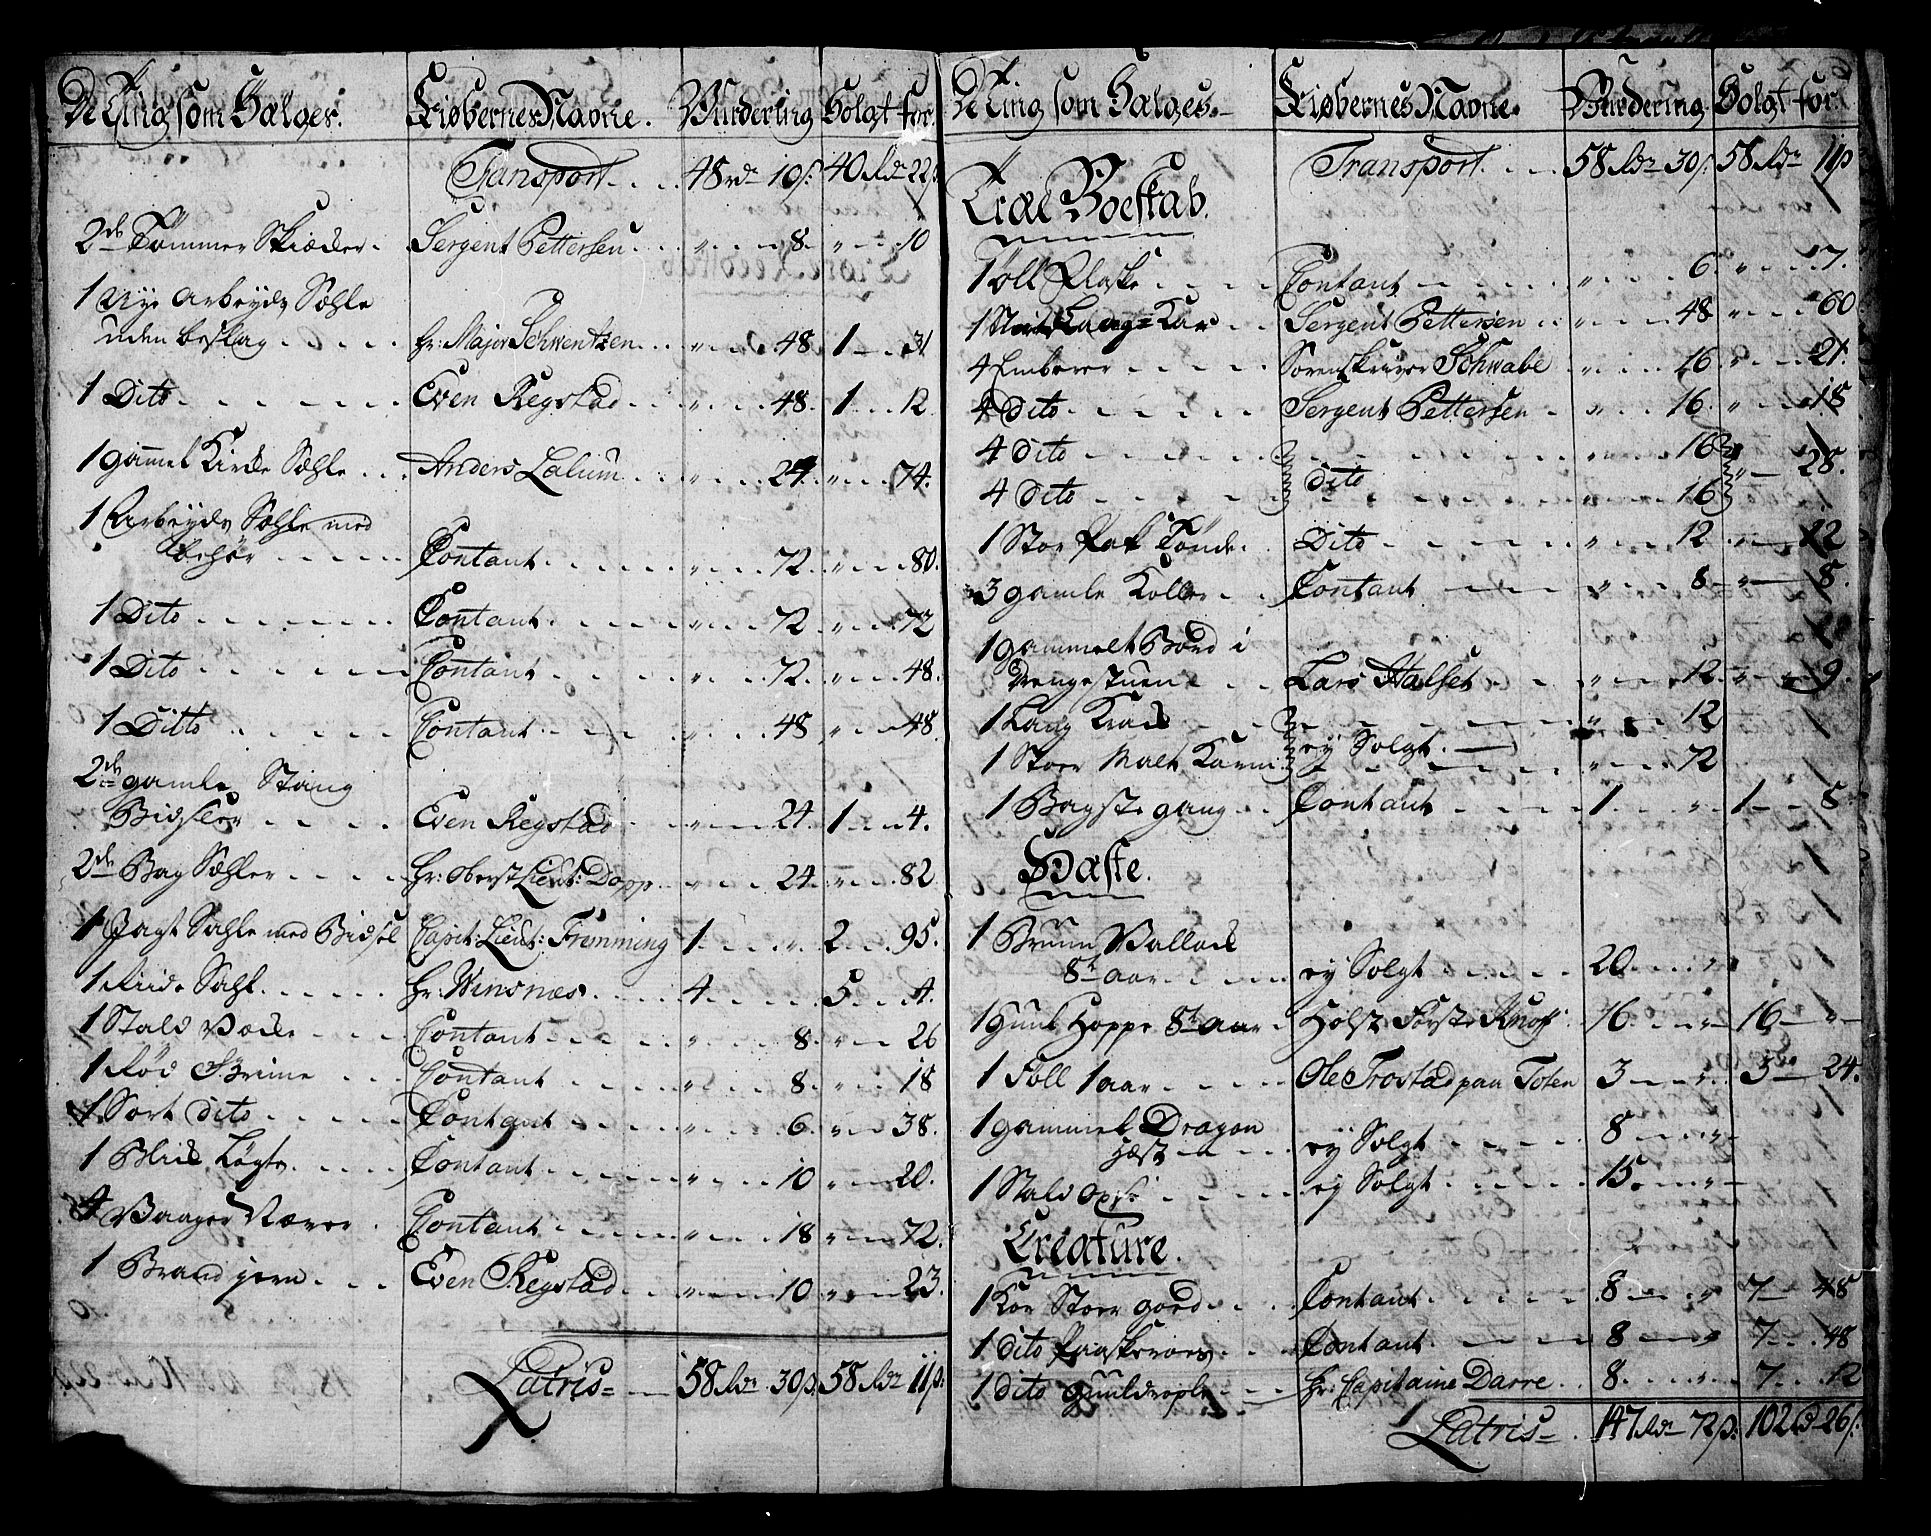 De Ting som Sælges. Kiøbernes Navne. Vurdering Solgt for.
Transport. 48 rdr 10 s. 40 rdr 22 s.
2de Tømmer Skiæder. Sergent Pettersen „ 8. „ 10
1 Nye Arbeyds Sæhle
uden beslag. hr: Major Schwentzen „ 48. 1 31
1 Dito Even Regstad „ 48. 1 12.
1 gammel Kirke Sæhle Anders Lalium „ 24 „ 74.
1 Arbeyds Sæhle med
behør Contant „ 72. „ 80.
1 Dito Contant „ 72. „ 72
1 Dito Contant „ 72. „ 48.
1 Ditto Contant „ 48 „ 48.
2de gamle Stang
Bidsler Even Regstad „ 24. 1 4.
2de Bag Sæhler hr: Oberst Lieut: Dopp „ 24. „ 82
1 Jagt Sahle med Bidsel Capit: Lieut: Fremming 1. „ 2 95.
1 Riide Sahl hr: Winsnæs 4. 5 4.
1 Stald Contant „ 8. „ 26
1 Rød Grime Contant „ 8. „ 18
1 Sort dito Contant „ 6. „ 38.
1 Blik Løgte Contant „ 10 „ 20.
4 Vaager Næver Contant „ 18 „ 72.
1 Brand jern Even Regstad „ 10 „ 23.
Latris 58 rdr 30 s. 58 rdr 11 s.
De Ting som Sælges. Kiøbernes Navne. Vurdering Solgt for.
Transport. 58 rdr 30 s. 58 rdr 11 s
Træe Boeskab.
1 Øll Flaske Contant „ 6. „ 7.
1 Kar Sergent Pettersen „ 48 „ 60
4 Embarer Sorenskriver Schwabe „ 16 „ 21
4 Dito Sergent Pettersen „ 16. „ 18
4 Dito „ 16
dito „ 28.
4 Dito „ 16
1 Stor Tønde. Dito „ 12 „ 12
3 gamle Koller Contant „ 8 „ 8.
1 gammelt Bord i
Drengestuen Lars Halset „ 12 „ 9.
1 Lang Krak „ 12
ey Solgt.
1 Stoer Malt Karm „ 72
1 Bagste gang Contant 1. „ 1 8
Hæste.
1 Bruun Vallack
8te aar. ey Solgt 20. „
1 Guul Hoppe 8te aar Holst Første Knoff. 16. „ 16 „
1 Foll 1 aar Ole Trostad paa Toten 3 „ 3 24.
1 gammel Dragon
Hæst ey Solgt 8 „
1 Stald ey Solgt 15. „
Creature.
1 Koe Stoer gord Contant 8 „ 7 48
1 dito Paaskeroes Contant 8 „ 7 48
1 dito Guuldrople hr: Capitaine Darre 8. „ 7 12
Latris 147 rdr 72 s: 102 rd 26 s.